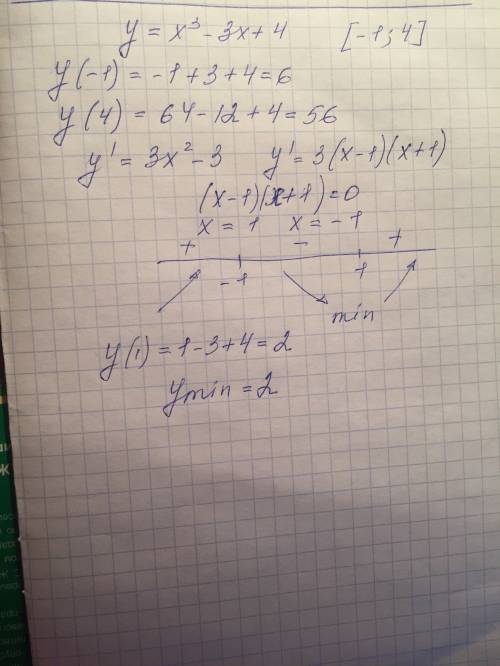 y = x³ - 3x + 4 [-1; 4]
y(-1) = -1 + 3 + 4 = 6
y(4) = 64 - 12 + 4 = 56
y' = 3x² - 3 y' = 3(x-1)(x+1)
(x-1)(x+1) = 0
x = 1 x = -1
+ - +
-1 1
min
y(1) = 1 - 3 + 4 = 2
y min = 2